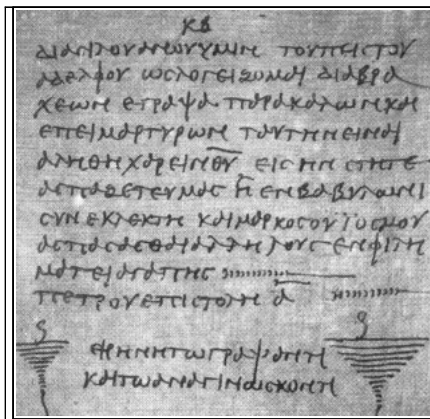 ΚΒ
ΔΙΑ ϹΙΛΟΥΑΝΟΥ ΥΜΙΝ ΤΟΥ ΠΕΙϹΤΟΥ
ΑΔΕΛΦΟΥ ΩϹ ΛΟΓΕΙΖΟΜΑΙ ΔΙΑ ΒΡΑ
ΧΕΩΝ ΕΓΡΑΨΑ ΠΑΡΑΚΑΛΩΝ ΚΑΙ
ΕΠΕΙΜΑΡΤΥΡΩΝ ΤΑΥΤΗΝ ΕΙΝΑΙ
ΑΛΗΘΗ ΧΑΡΕΙΝ Θ̅Υ̅ ΕΙϹ ΗΝ ϹΤΗΤΕ
ΑϹΠΑΖΕΤΕ ΥΜΑϹ Η ΕΝ ΒΑΒΥΛΩΝΙ
ϹΥΝΕΚΛΕΚΤΗ ΚΑΙ ΜΑΡΚΟϹ Ο ΥΙΟϹ ΜΟΥ
ΑϹΠΑϹΑϹΘΑΙ ΑΛΛΗΛΟΥϹ ΕΝ ΦΙΛΗ
ΜΑΤΕΙ ΑΓΑΠΗϹ
ΠΕΤΡΟΥ ΕΠΙϹΤΟΛΗ Α̅
ΕΙΡΗΝΗ ΤΩ ΓΡΑΨΑΝΤΙ
ΚΑΙ ΤΩ ΑΝΑΓΙΝΩϹΚΟΝΤΙ